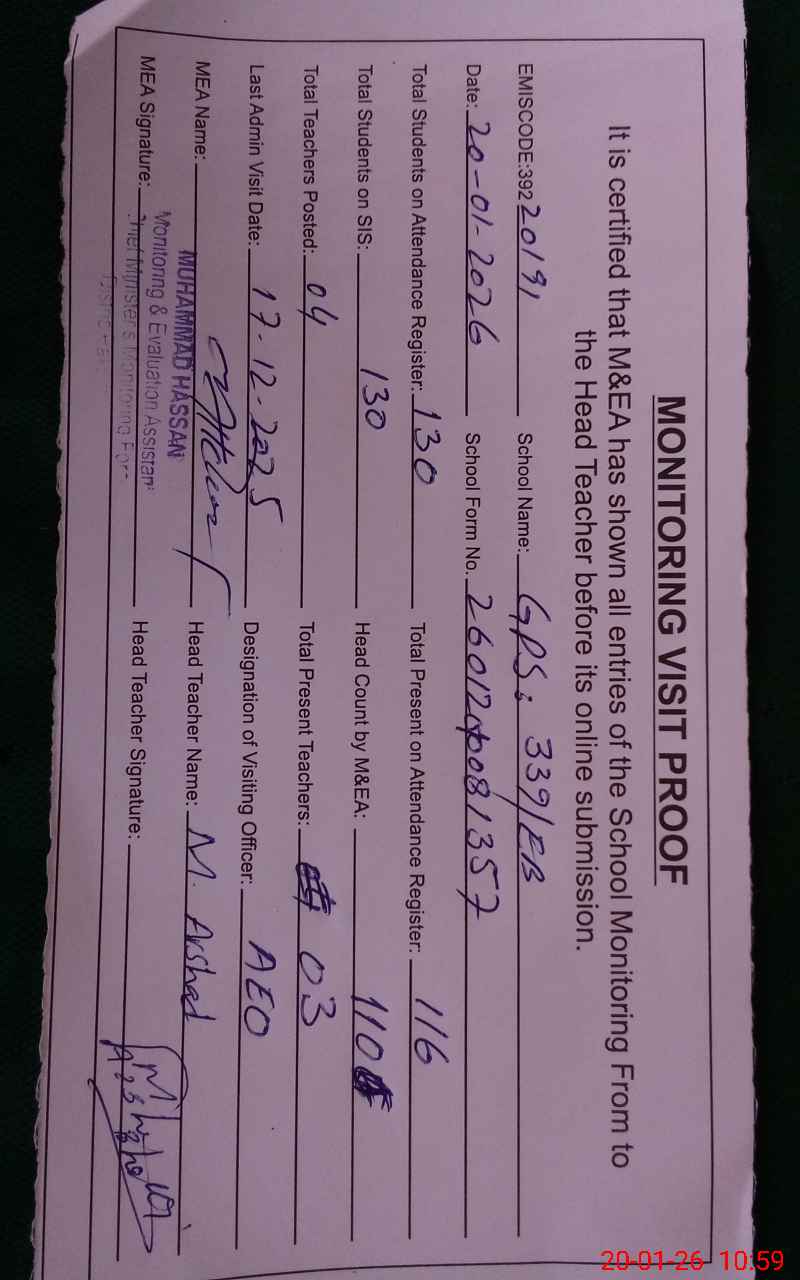 MONITORING VISIT PROOF
It is certified that M&EA has shown all entries of the School Monitoring From to
the Head Teacher before its online submission.
EMISCODE:392 20191 School Name: GPS: 339/EB
Date: 20-01-2026 School Form No. 260120081357
Total Students on Attendance Register: 130 Total Present on Attendance Register: 116
Total Students on SIS: 130 Head Count by M&EA: 110
Total Teachers Posted: 04 Total Present Teachers: 03
Last Admin Visit Date: 17-12-2025 Designation of Visiting Officer: AEO
MEA Name: Head Teacher Name: M. Arshad
MUHAMMAD HASSAN
Monitoring & Evaluation Assistan
MEA Signature: Head Teacher Signature:
20-01-26 10:59